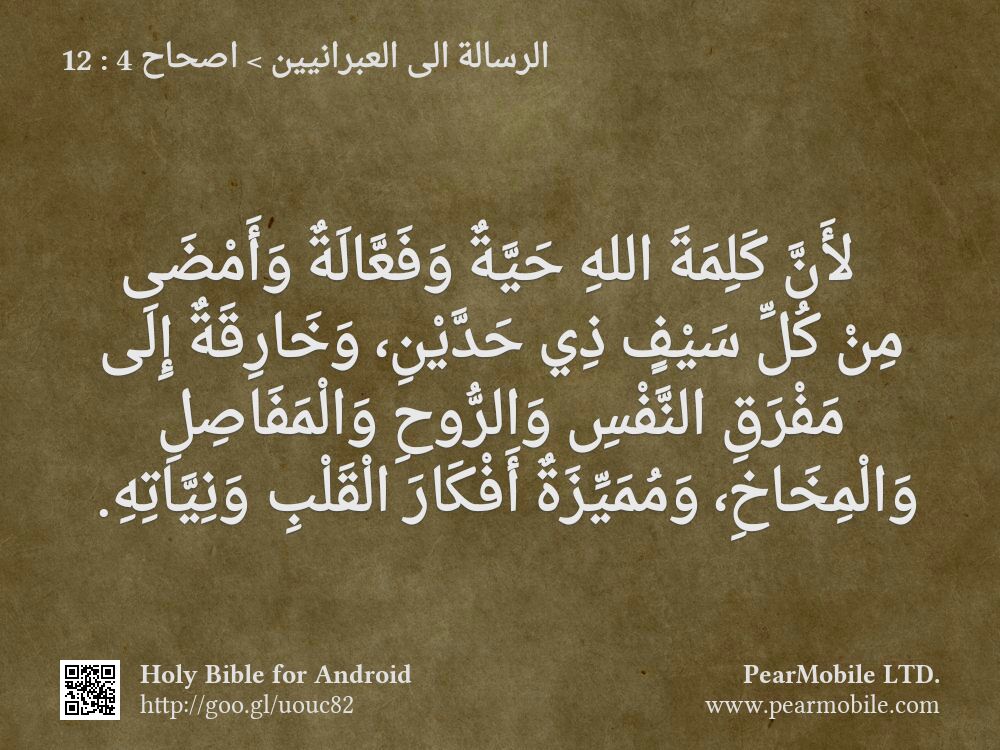 الرسالة الى العبرانيين > اصحاح 4 : 12
لأَنَّ كَلِمَةَ اللهِ حَيَّةٌ وَفَعَّالَةٌ وَأَمْضَى
مِنْ كُلِّ سَيْفٍ ذِي حَدَّيْنِ، وَخَارِقَةٌ إِلَى
مَفْرَقِ النَّفْسِ وَالرُّوحِ وَالْمَفَاصِلِ
وَالْمِخَاخِ، وَمُمَيِّزَةٌ أَفْكَارَ الْقَلْبِ وَنِيَّاتِهِ.
Holy Bible for Android
http://goo.gl/uouc82
PearMobile LTD.
www.pearmobile.com